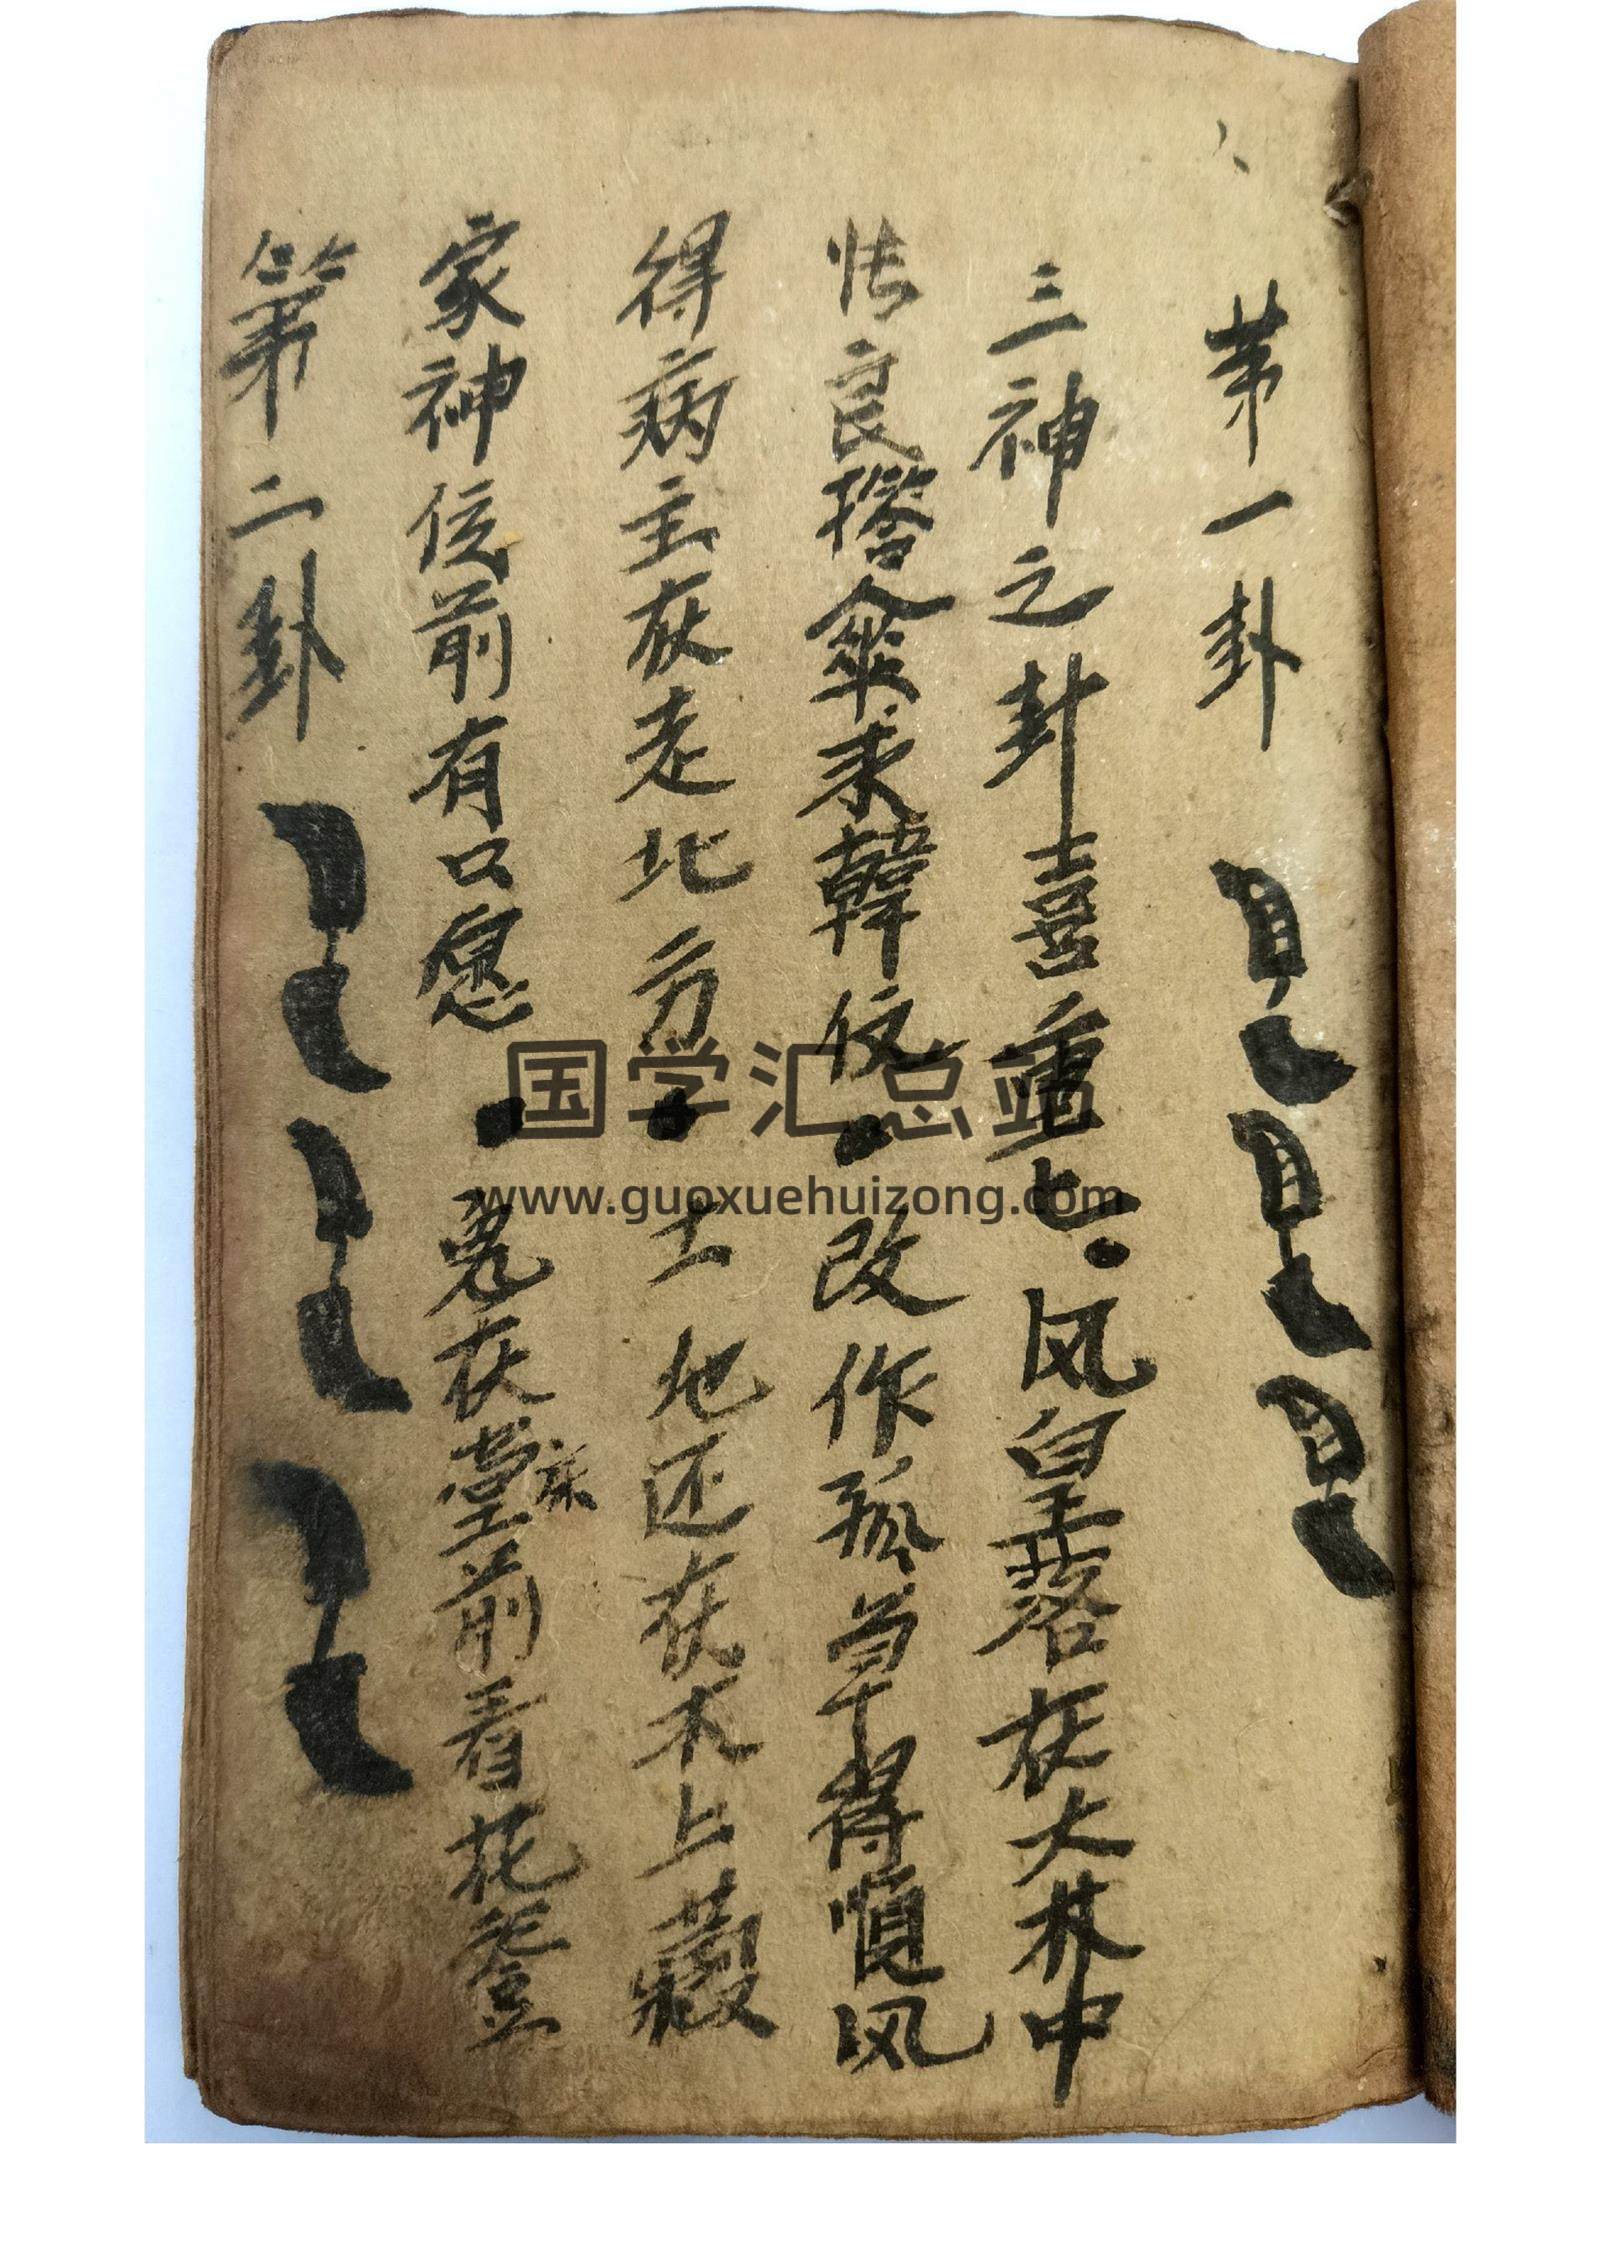 第一卦
三神之卦喜重七。凤皇落在大林中
怅良撘傘来韓仅。改作孤草得順风
得病主在走北方。土地还在不上
家神位前有口愿。鬼在堂前看花登
第二卦
国学汇总站
www.guoxuehuizong.com